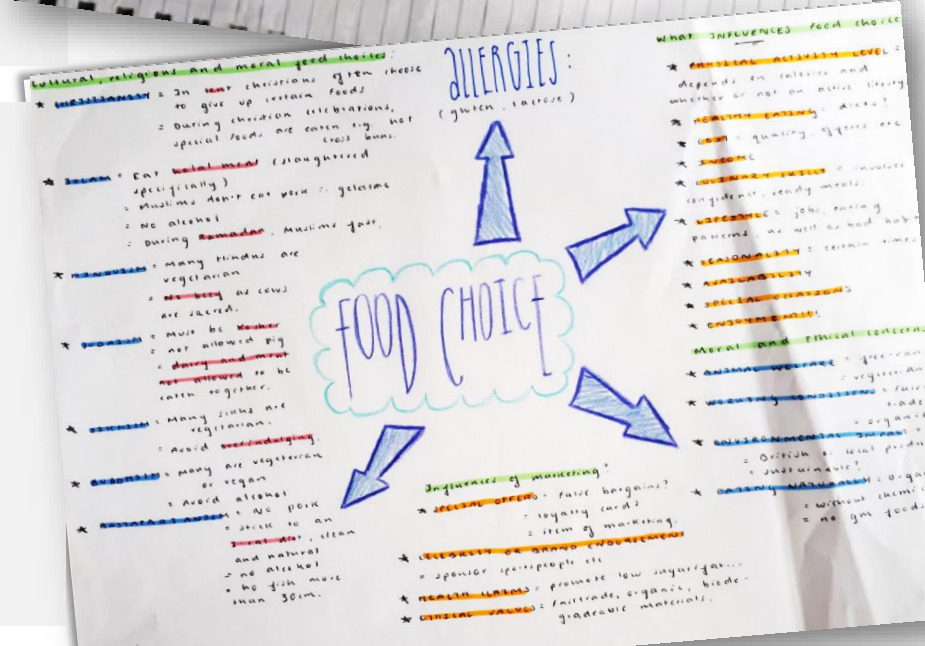 Cultural, religious and moral food choices:
★ CHRISTIANITY = In lent christians often choose
to give up certain foods
= During christian celebrations,
special foods are eaten e.g. hot
cross buns.
★ ISLAM = Eat halal meat (slaughtered
specifically)
= Muslims don't eat pork ∴ gelatine
= No alcohol
= During Ramadan, Muslims fast.
★ HINDUISM = Many Hindus are
vegetarian
= No beef as cows
are sacred.
★ JUDAISM = Must be Kosher
= not allowed pig
= dairy and meat
not allowed to be
eaten together.
★ SIKHISM = Many Sikhs are
vegetarian.
= Avoid overindulging.
★ BUDDHISM = Many are vegetarian
or vegan
= Avoid alcohol
★ RASTAFARIANISM = No pork
= stick to an
I-tal diet, clean
and natural
= no alcohol
= no fish more
than 30cm.
ALLERGIES:
(gluten, lactose)
FOOD CHOICE
Influences of marketing?
★ SPECIAL OFFERS = false bargains?
= loyalty cards
= item of marketing.
★ CELEBRITY OR BRAND ENDORSEMENT
= sponsor sportspeople etc
★ HEALTH CLAIMS = promote low sugar/fat...
★ ETHICAL VALUES = fairtrade, organic, biode-
gradeable materials.
What INFLUENCES food choice
★ PHYSICAL ACTIVITY LEVEL =
depends on calories and
whether or not an active lifestyle
★ HEALTHY EATING = diets?
★ COST = quality, offers etc
★ INCOME
★ CULINARY SKILLS = involves
confident, ready meals.
★ LIFESTYLE = jobs, eating
patterns, as well as bad habi
★ SEASONALITY = certain times
★ AVAILABILITY
★ SPECIAL OCCASIONS
★ ENJOYMENT!!!
Moral and ethical concerns
★ ANIMAL WELFARE = free-ran
= vegetarian
★ WORKING CONDITIONS = fair
trade
= organic
★ ENVIRONMENTAL IMPACT =
= British or local produ
= sustainable?
★ EATING NATURALLY = orga
= without chemic
= no gm foods